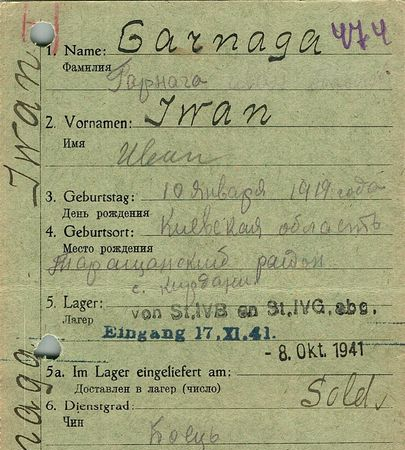 474
1. Name: Garnaga
Фамилия Гарнага
2. Vornamen: Iwan
Имя Иван
3. Geburtstag: 10 января 1919 года
День рождения
4. Geburtsort: Киевская область
Место рождения
Таращанский район
с. Кирдани
5. Lager: von St.IVB an St.IVG. abg.
Лагер
Eingang 17. XI. 41.
- 8. Okt. 1941
5a. Im Lager eingeliefert am:
Доставлен в лагер (число)
6. Dienstgrad: Sold.
Чин
Боец
Iwan
naga